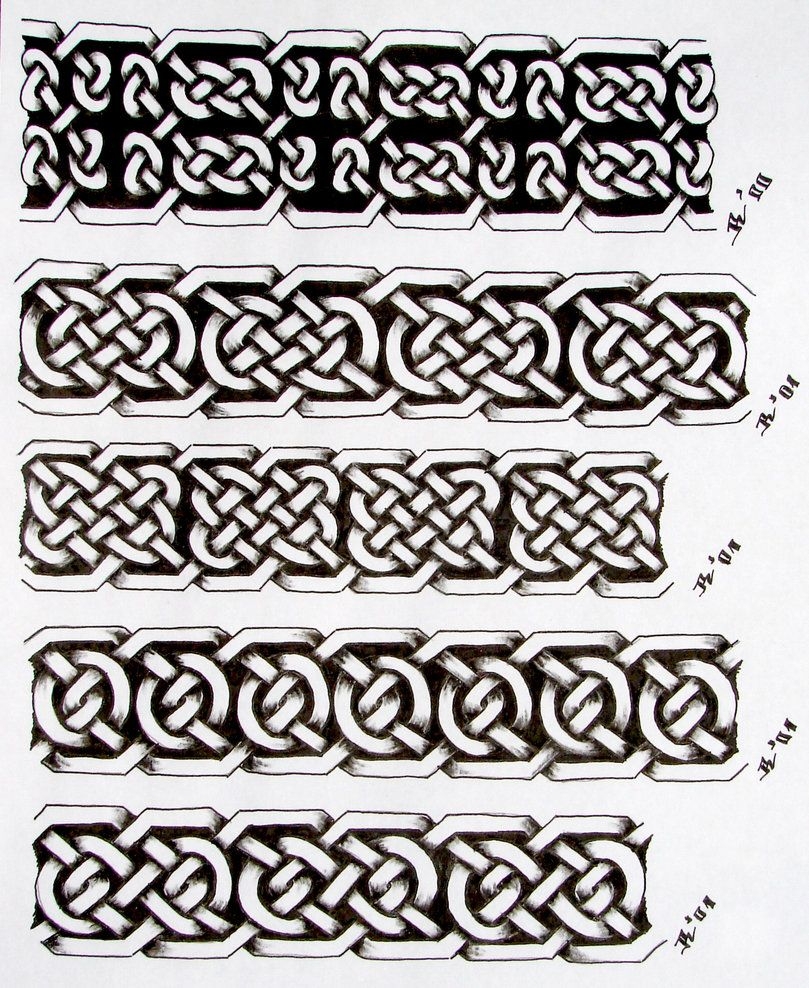 R'00
R'01
R'01
R'01
R'01